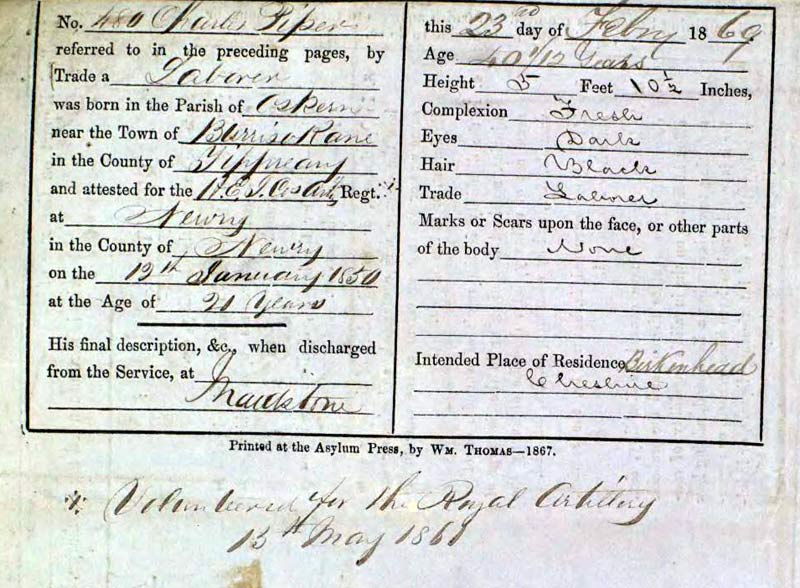 No. 480 Charles Piper
referred to in the preceding pages, by
Trade a Laborer
was born in the Parish of
near the Town of Burrisokane
in the County of Tipperary
and attested for the H.E.I.Cos Arty Regt.
at Newry
in the County of Newry
on the 12th January 1850
at the Age of 21 Years
His final description, &c., when discharged
from the Service, at
Maidstone
this 23rd day of Febry 1869
Age 40 1/12 Years
Height 5 Feet 10½ Inches,
Complexion Fresh
Eyes Dark
Hair Black
Trade Laborer
Marks or Scars upon the face, or other parts
of the body None
Intended Place of Residence Birkenhead
Cheshire
Printed at the Asylum Press, by WM. THOMAS—1867.
Volunteered for the Royal Artillery
13th May 1861